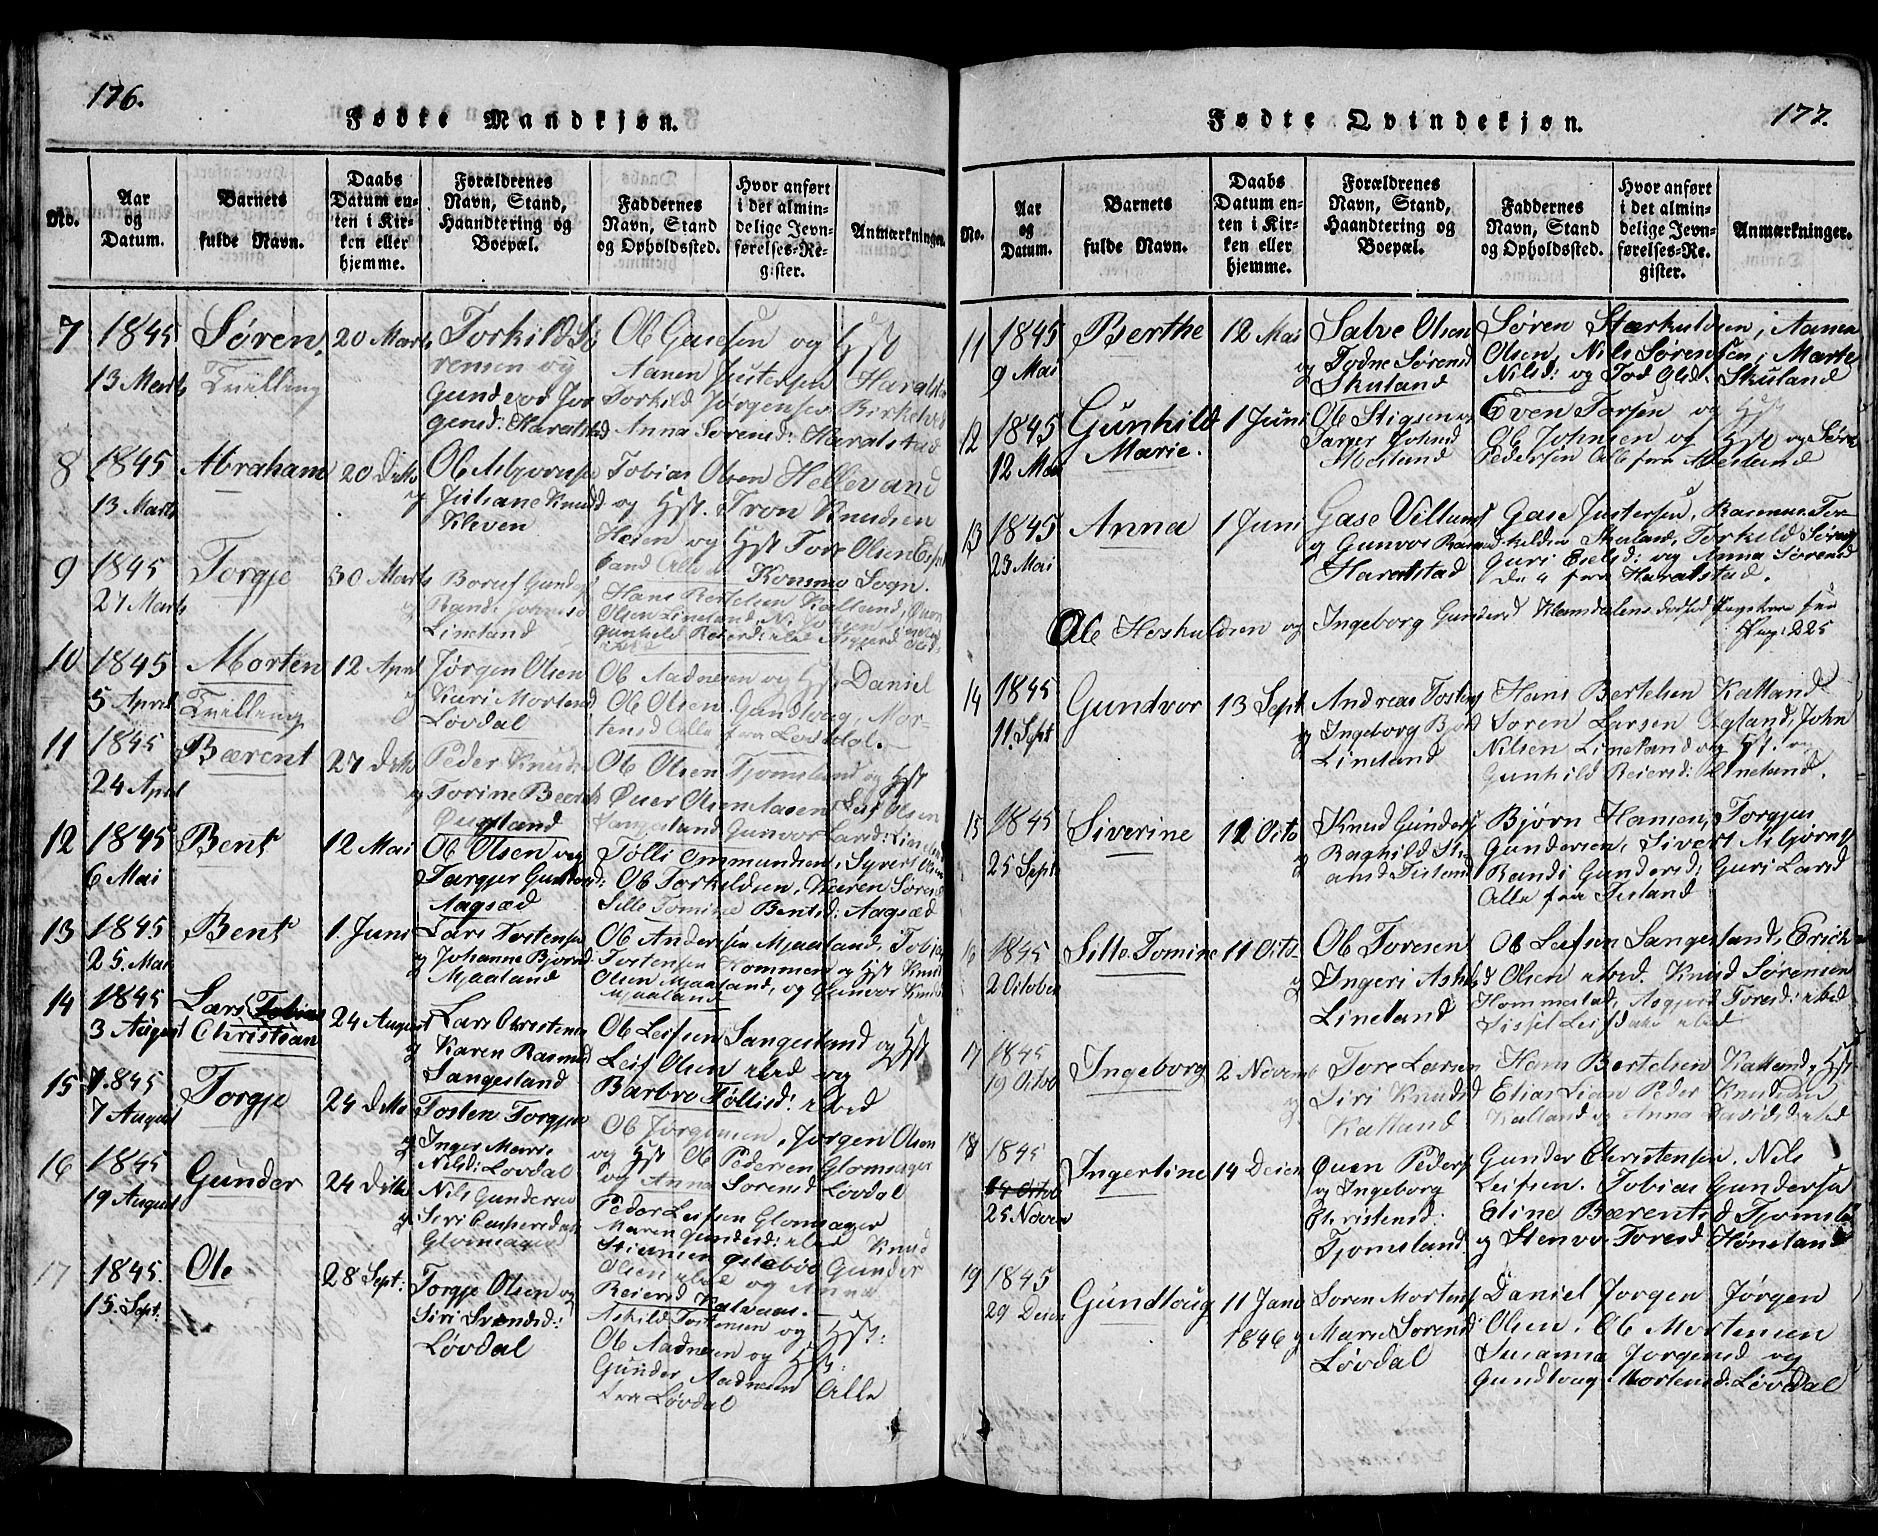 176.
Fødte Mandkjøn.
No.
Aar
og
Datum.
Barnets
fulde Navn.
Daabs
Datum en-
ten i Kir-
ken eller
hjemme.
Forældrenes
Navn, Stand,
Haandtering og
Boepæl.
Faddernes
Navn, Stand
og Opholdssted.
Hvor anført
i det almin-
delige Jevn-
førelses-Re-
gister.
Anmærkninger.
7
1845
13 Marts
Søren.
Tvilling
20 Marts
Torkild Sö
rensen og
Gundvor Jör
gensd: Haralstad
Ole Gasesen og Hst
Aanen Justersen Haralstad
Torkild Jørgensen Birkeland
Anna Sørensd: Haralstad
8
1845
13 Marts
Abraham
20 Dito
Ole Asbjornse
og Juliane Knudsd
Kleven
Tobias Olsen Hellevand
og Hst. Tron Knudsen
Heien og Hst Tore Olsen
Alle Konsmo Sogn.
9
1845
27 Marts
Torgje
30 Marts
og
Lineland
Hans Bertelsen Katland,
Olsen Lineland,
Gunhild Reiersd:
10
1845
5 April
Morten
Tvilling
12 April
Jørgen Olsen
og Kari Mortensd
Løvdal
Ole Aadnesen og Hst Daniel
Ole Olsen Gundloug, Mor-
tensd Alle fra Løvdal.
11
1845
24 April
Bærent
27 Dito
Peder Knuds
og Torine Bærents
Ougland
Ole Olsen Tjomsland og Hst
Øuer Olsen Aasen Leif Olsen
Sangesland Gunvor Larsd: Lineland
12
1845
6 Mai
Bent
12 Mai
Ole Olsen og
Targjer Gunders
Aagsæd
Tølli Ommundsen, Syvert Olsen
Ole Torkildsen, Karen Sørensd
Sille Tomine Bentsd: Aagsæd
13
1845
25. Mai
Bent
1. Juni
Lars Tostensen
og Johanne Bjørnsd
Mjaaland
Ole Andersen Mjaaland, Tobias
Tostensen Kommen og Hst Knud
Olsen Mjaaland, og Gunvor Knudsd
Mjaaland
14
1845
3 August
Lars Tobias
Christian
24 August
Lars Christensen
og Karen Rasmusd
Sangesland
Ole Leifsen Sangesland og Hst
Leif Olsen ibid og
Barbro Töllisd: ibid
15
1845
7 August
Torgje
24 Dito
Tosten Torgjen
og Inger Marie
Nilsd: Løvdal
Ole Jørgensen, Jørgen Olsen
og Hst Ole Pedersen Glomsager
og Anna Sørensd Løvdal
16
1845
19 August
Gunder
24 Dito
Nils Gundersen
og Siri Caspersdatt
Glomsager
Peder Leifsen Glomsager
Maren Gundersd: ibid Knud
Olsen ibid og Anna
Reiersd
17
1845.
15. Sept:
Ole
28 Sept:
Torgje Olsen og
Siri Svendsd:
Løvdal
Askild Tostensen og Hst:
Ole Aadnesen og Hst:
Gunder Aadnesen Alle
fra Løvdal
177.
Fødte Qvindekjøn.
No.
Aar
og
Datum.
Barnets
fulde Navn.
Daabs
Datum en-
ten i Kir-
ken eller
hjemme.
Forældrenes
Navn, Stand,
Haandtering og
Boepæl.
Faddernes
Navn, Stand
og Opholdssted.
Hvor anført
i det almin-
delige Jevn-
førelses-Re-
gister.
Anmærkninger.
11
1845
9 Mai
Berthe
12 Mai
Salve Olsen
og Todne Sørensd
Skuland
Søren Stærkuldsen, Aanen
Olsen, Nils Sørensen, Marte
Nilsd: og Tod Olsd: Skuland
12
1845
12 Mai
Gunhild
Marie.
1 Juni
Ole Stigsen og
Johnsd
Mesland
Even Torsen og Hst
Ole Johnsen og Hst og Søren
Pedersen Alle fra Mesland
13
1845
23 Mai
Anna
1 Juni
Gase Villums
og Gunvor Rasmusd
Haralstad
Gase Justersen, Rasmus Tor-
kildsen Skuland, Torkild Søreng
Guri Eielsd: og Anna Sørensd
De 4 fra Haralstad.
Ole Hoskuldsen og Ingeborg Gundersd Klemsdalens dødfød Pigebarn see
Pag: 225
14
1845
11. Sept
Gundvor
13 Sept
Andreas Tostens
og Ingeborg Bjd
Lineland
Hans Bertelsen Katland
Soren Larsen Ougland, John
Nilsen Lineland og Hst. og
Gunhild Reiersd: Lineland.
15
1845
25 Sept
Siverine
12 Octo
Knud Gunders
og Raghild Sti
ansd Tisland
Bjørn Hansen, Torgjus
Gundersen, Sivert Asbjørns
Randi Gundersd: Guri Larsd
Alle fra Tisland
16
1845
2 October
Sille Tomine
11 Octo
Ole Toresen
og Ingeri Askilds
Lineland
Ole Leifsen Sangesland, Erich
Olsen ibid. Knud Sørensen
Hommestad, Asgjerd Toresd: ibid
Sissel Leifdatr ibid
17
1845
19 Octob
Ingeborg
2 Novem
Tore Larsen
og Siri Knudsd
Katland
Hans Bertelsen Katland, Hst
Elias Peder Knudsen
Katland og Anna Davids d ibid
18
1845
25 Novem
Ingerline
14 Decem
Øuen Peders
og Ingeborg
Christensd:
Tjomsland
Gunder Christensen. Nils
Leifsen. Tobias Gundersen
Eline Bærentsd Tjomsland
og Stenvor Toresd Høneland
19
1845
29 Decem
Gundloug
11 Janu
1846
Soren Mortens
og Marie Sorensd
Løvdal
Daniel Jorgen Jørgen
Olsen, Ole Mortensen
Susanna Jorgensd og
Gundloug Mortensd: Løvdal